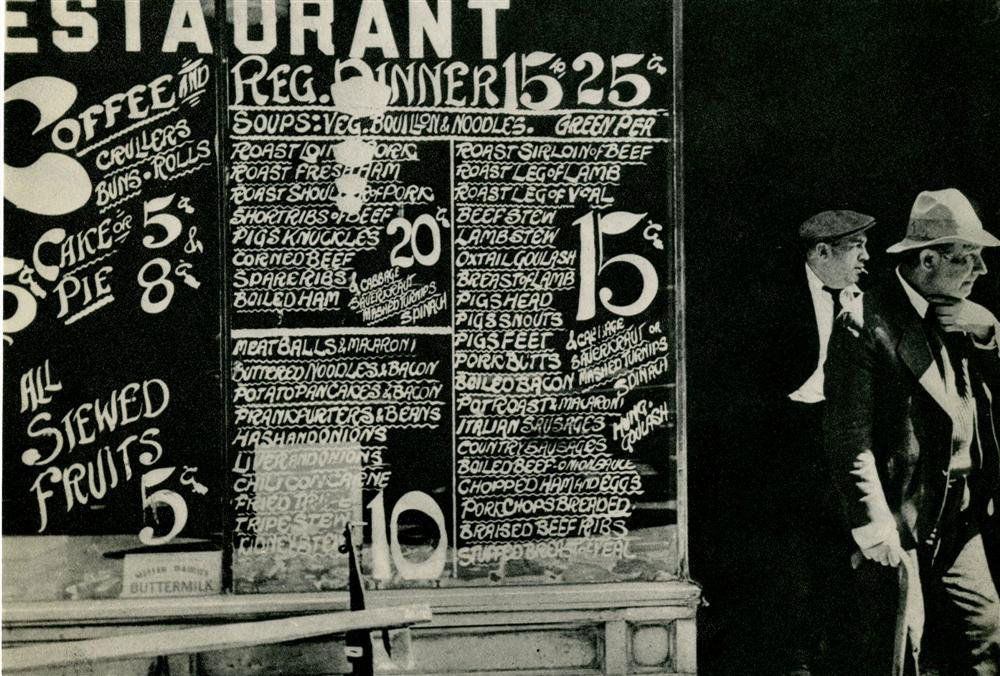 ESTAURANT
COFFEE AND
CRULLERS
BUNS • ROLLS
5¢
CAKE OR 5¢ &
PIE 8¢
ALL
STEWED
FRUITS
5¢
BUTTERMILK
REG. DINNER 15 TO 25¢
SOUPS: VEG. BOUILLON & NOODLES. GREEN PEA
ROAST LOIN PORK
ROAST FRESH HAM
ROAST SHOUL OF PORK
SHORT RIBS OF BEEF
PIGS KNUCKLES
CORNED BEEF
SPARE RIBS
BOILED HAM
& CABBAGE
SAUERKRAUT
MASHED TURNIPS
SPINACH
20¢
MEAT BALLS & MACARONI
BUTTERED NOODLES & BACON
POTATO PANCAKES & BACON
FRANKFURTERS & BEANS
HASH AND ONIONS
LIVER AND ONIONS
CHILI CON CARNE
FRIED TRIPE
TRIPE STEW
10
ROAST SIRLOIN OF BEEF
ROAST LEG OF LAMB
ROAST LEG OF VEAL
BEEF STEW
LAMB STEW
OXTAIL GOULASH
BREAST OF LAMB
PIGS HEAD
PIGS SNOUTS
PIGS FEET
PORK BUTTS
BOILED BACON
15¢
& CABBAGE
SAUERKRAUT OR
MASHED TURNIPS
SPINACH
POT ROAST & MACARONI
ITALIAN SAUSAGES
HUNG.
GOULASH
COUNTRY SAUSAGES
BOILED BEEF - ONION SAUCE
CHOPPED HAM AND EGGS
PORK CHOPS BREADED.
BRAISED BEEF RIBS
STUFFED BREAST OF VEAL